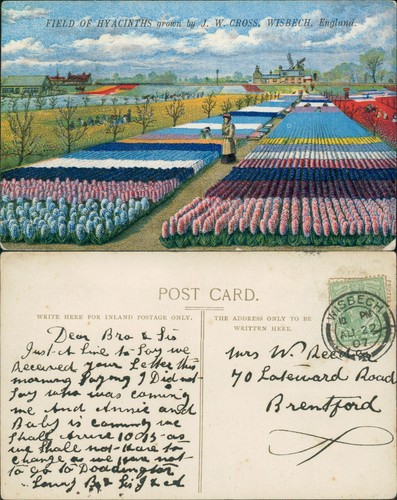 FIELD OF HYACINTHS grown by J. W. CROSS, WISBECH, England.
POST CARD.
WRITE HERE FOR INLAND POSTAGE ONLY.
THE ADDRESS ONLY TO BE
WRITTEN HERE.
WISBECH
PM
AU 22
07
Dear Bro & Sis
Just A Line to Say we
Received your Letter this
morning Saying I Did not
Say who was coming
me And Annie and
Baby is coming we
Shall Arrive 10 as
we shall not have to
change as we have not
to go to Doddington
Bro & Sis
Mrs W.
70 Lateward Road
Brentford